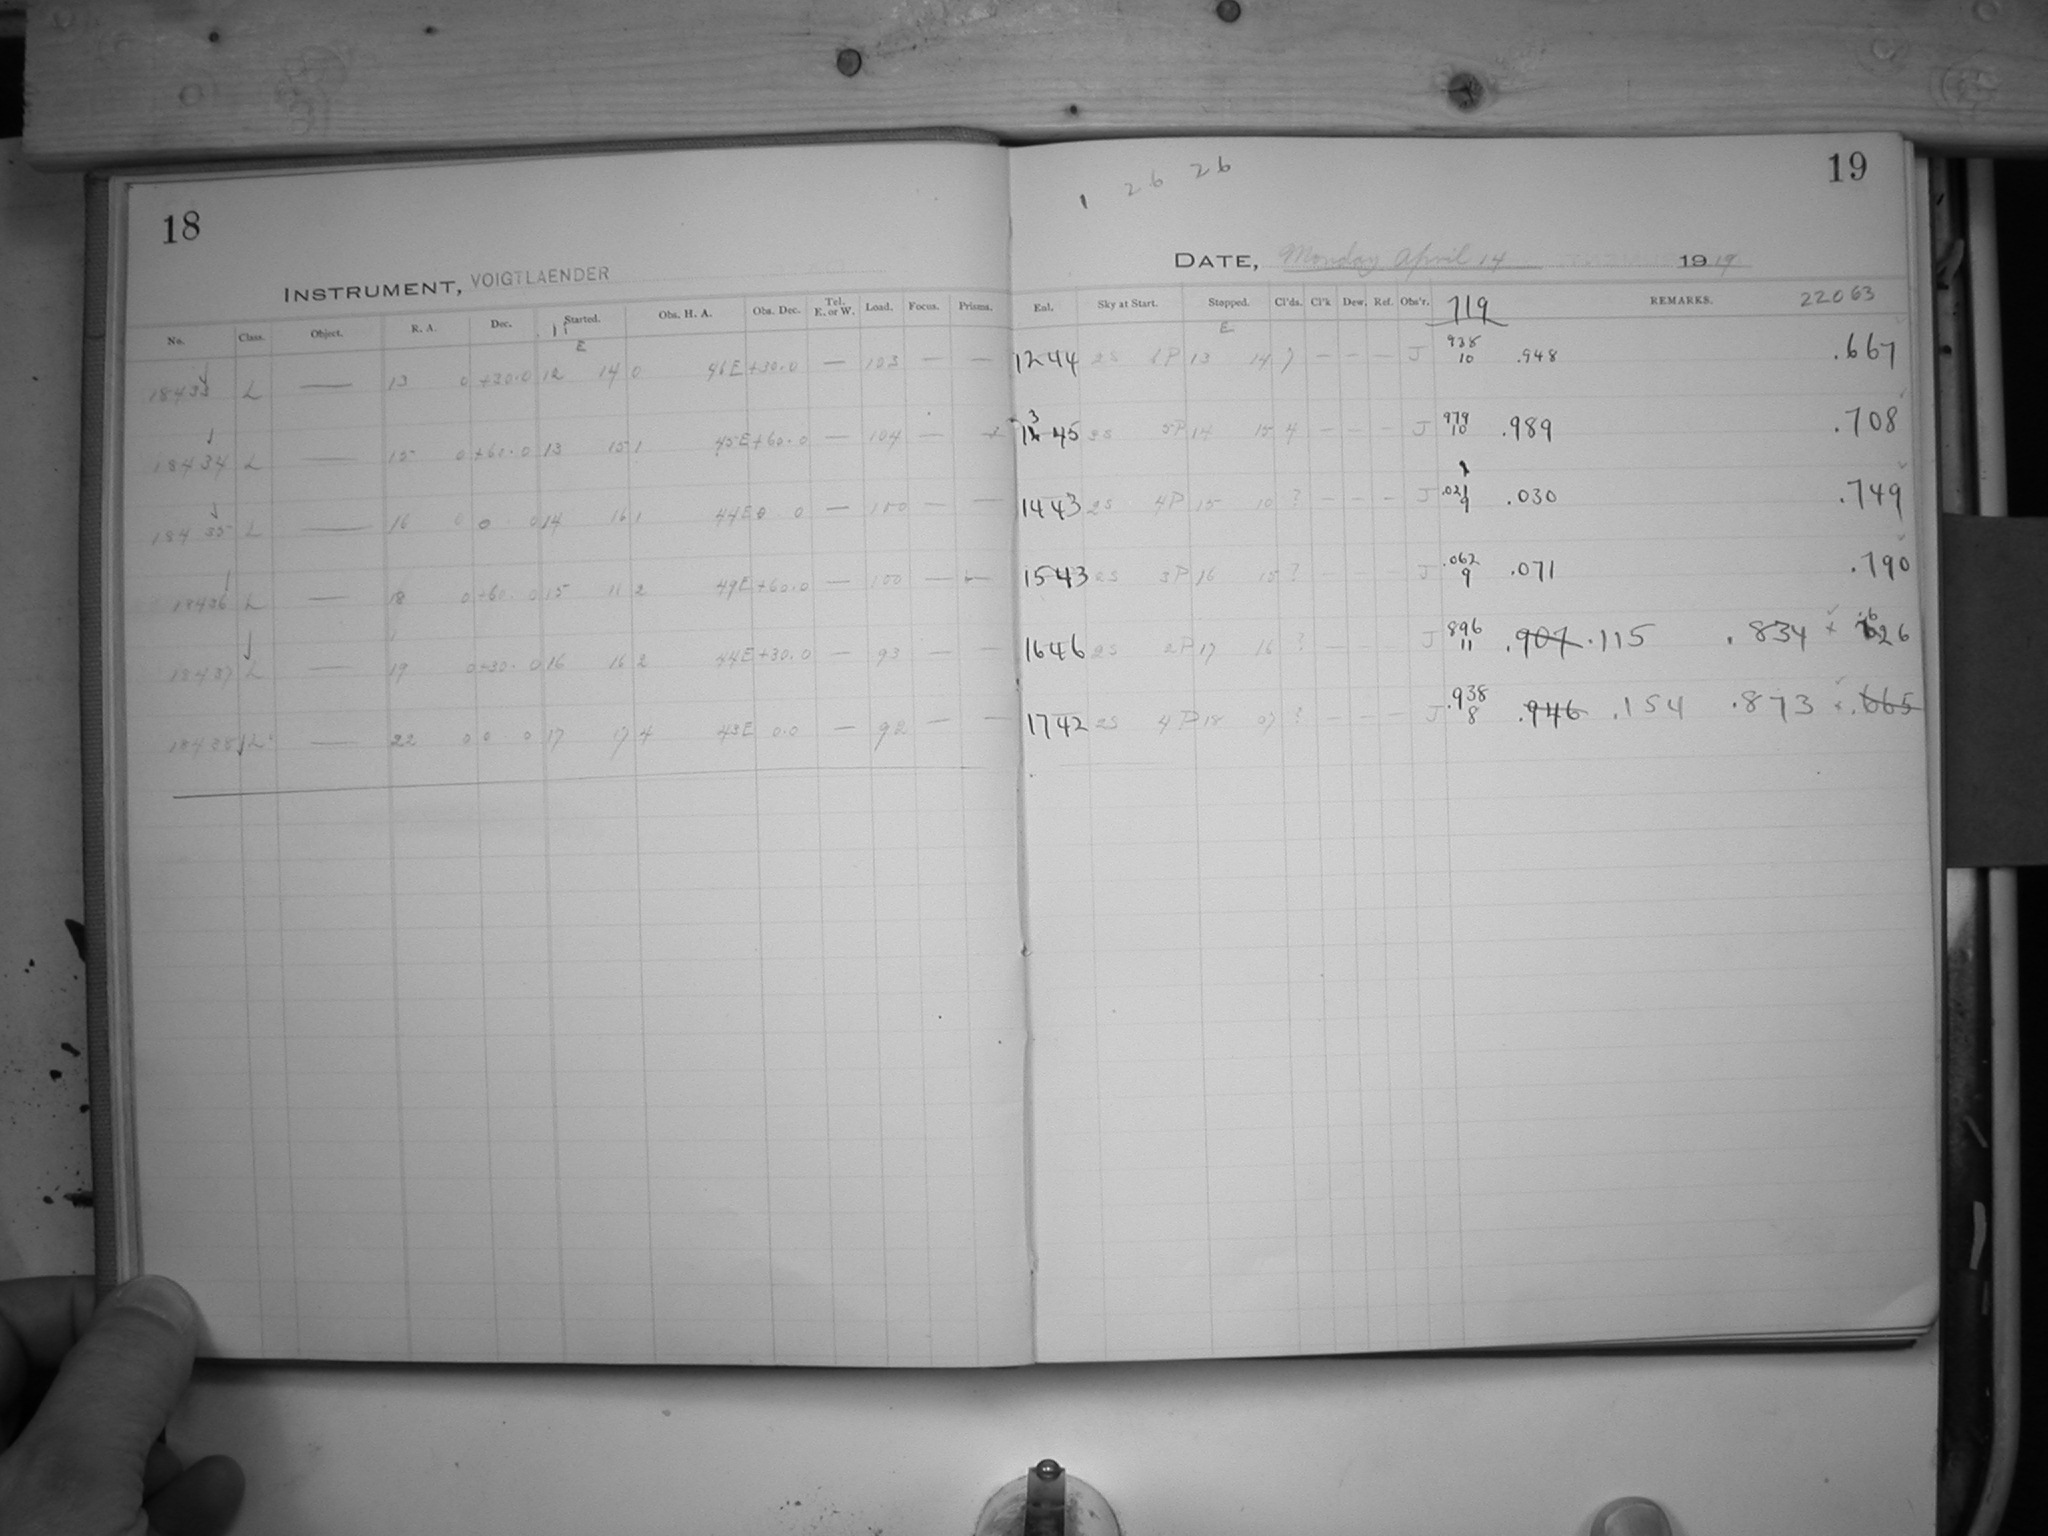 18
INSTRUMENT, VOIGTLAENDER
No. Class. Object. R. A. Dec. Started. Obs. H. A. Obs. Dec. Tel. E. or W. Load. Focus. Prisms.
E
18433 L — 13 0 +30.0 12 14 0 46E +30.0 — 103 — —
18434 L — 15 0 +60.0 13 15 1 45E +60.0 — 104 — —
18435 L — 16 0 0 0 14 16 1 44E 0 0 — 100 — —
18436 L — 18 0 +60. 0 15 11 2 49E +60.0 — 100 — —
18437 L — 19 0 +30. 0 16 16 2 44E +30.0 — 93 — —
18438 L — 22 0 0 0 17 17 4 43E 0.0 — 92 — —
1 26 26
19
DATE, Monday April 14 1919
Eal. Sky at Start. Stopped. Cl'ds. Cl'k Dew. Ref. Obs'r. 719 REMARKS. 22063
E
1244 2S 13 14 ? — — — J 938 10 .948 .667
3
1245 2S 5P 14 15 4 — — — J 979 10 .989 .708
1443 2S 4P 15 10 ? — — — J .021 9 .030 .749
1543 2S 3P 16 15 ? — — — J .062 9 .071 .790
1646 2S 2P 17 16 ? — — — J 896 11 .907 .115 .834
1742 2S 4P 18 07 ? — — — J .938 8 .946 .154 .873 .665